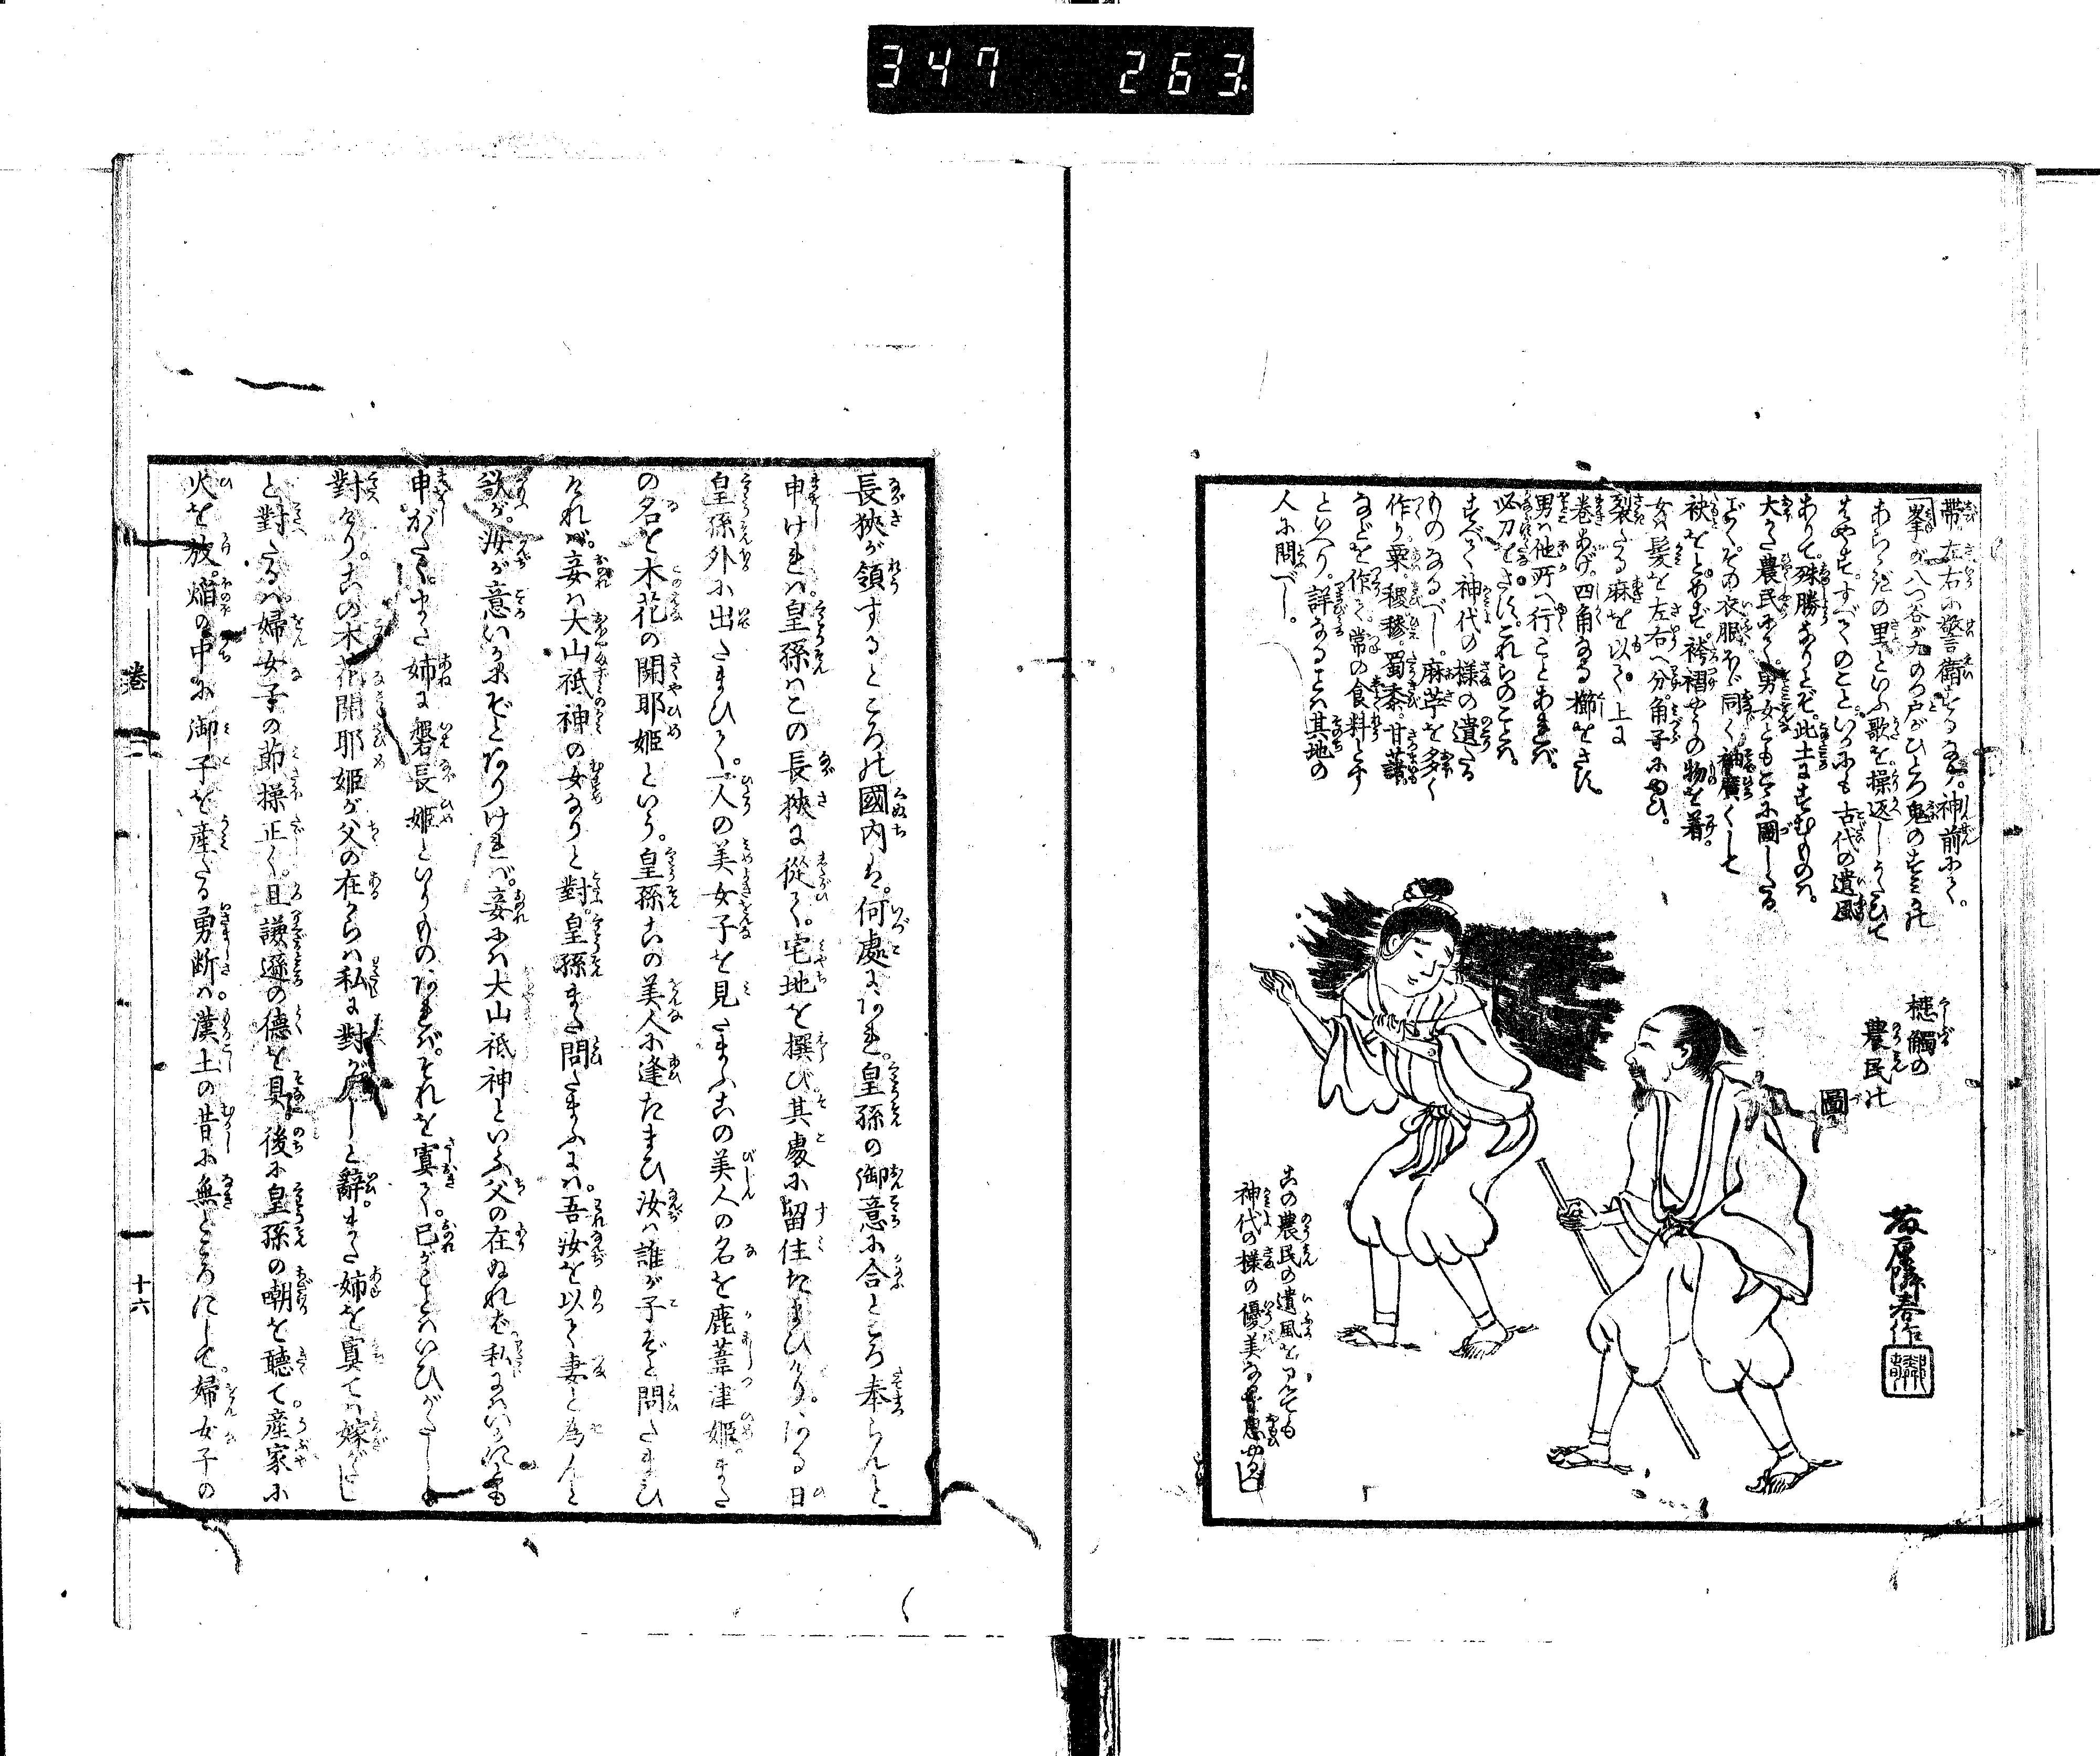 347 263
帶左右に警衛するなり。神前にて。
峯が八つ谷が九のつ戸がひとつ鬼のすみかは
あらゝぎの里といふ歌を。操返しうたひて
はやす。すべてのこと。いかにも古代の遺風
ありて。殊勝なりとぞ。此土にすむものは。
大かた農民にて。男女ともこゝに圖したる
ごとく。その衣服ほゞ同く袖廣くして
袂をとめず袴褶やうの物を着。
女は髪を左右へ分。角子にゆひ。
裂たる麻を以て上に
巻あげ。四角なる櫛をさす。
男は他所へ行ことあれば。
必刀をさす。これらのことは。
すべて神代の様の遺たる
ものなるべし。麻苧を多く
作り。粟。稷。穇。蜀黍。甘藷
などを作て。常の食料とす
といへり。詳なることは其地の
人に問べし。
槵觸の
農民の
圖
藤原隣春作
この農民の遺風を見ても
神代の様の優美なる事思ひやるべし
長狹が領するところの國内は。何處にまれ。皇孫の御意に合ところ奉らんと
申ければ皇孫はこの長狹に從て。宅地を撰び其處に留住たまひけり。ある日
皇孫外に出たまひて。一人の美女子を見たまふこの美人の名を鹿葦津姫。また
の名を木花の開耶姫といふ。皇孫この美人に逢たまひ汝は誰が子ぞと問たまひ
ければ。妾は大山祇神の女なりと對。皇孫また問たまふには。吾汝を以て妻と為んと
欲が。汝が意いかにぞとありければ。妾には大山祇神といふ父の在ぬれば私にはいかにとも
申がたく。また姉に磐長姫といふものあれば。それを寘て。己がことはいひがたしと
對けり。この木花開耶姫が父の在からは私に對がたしと辭。また姉を寘ては嫁がたし
と對たるは。婦女子の節操正く。且謙遜の徳を具。後に皇孫の嘲を聽て。産家に
火を放。焰の中に御子を産たる勇断は。漢土の昔に無ところにして。婦女子の
卷二
十六